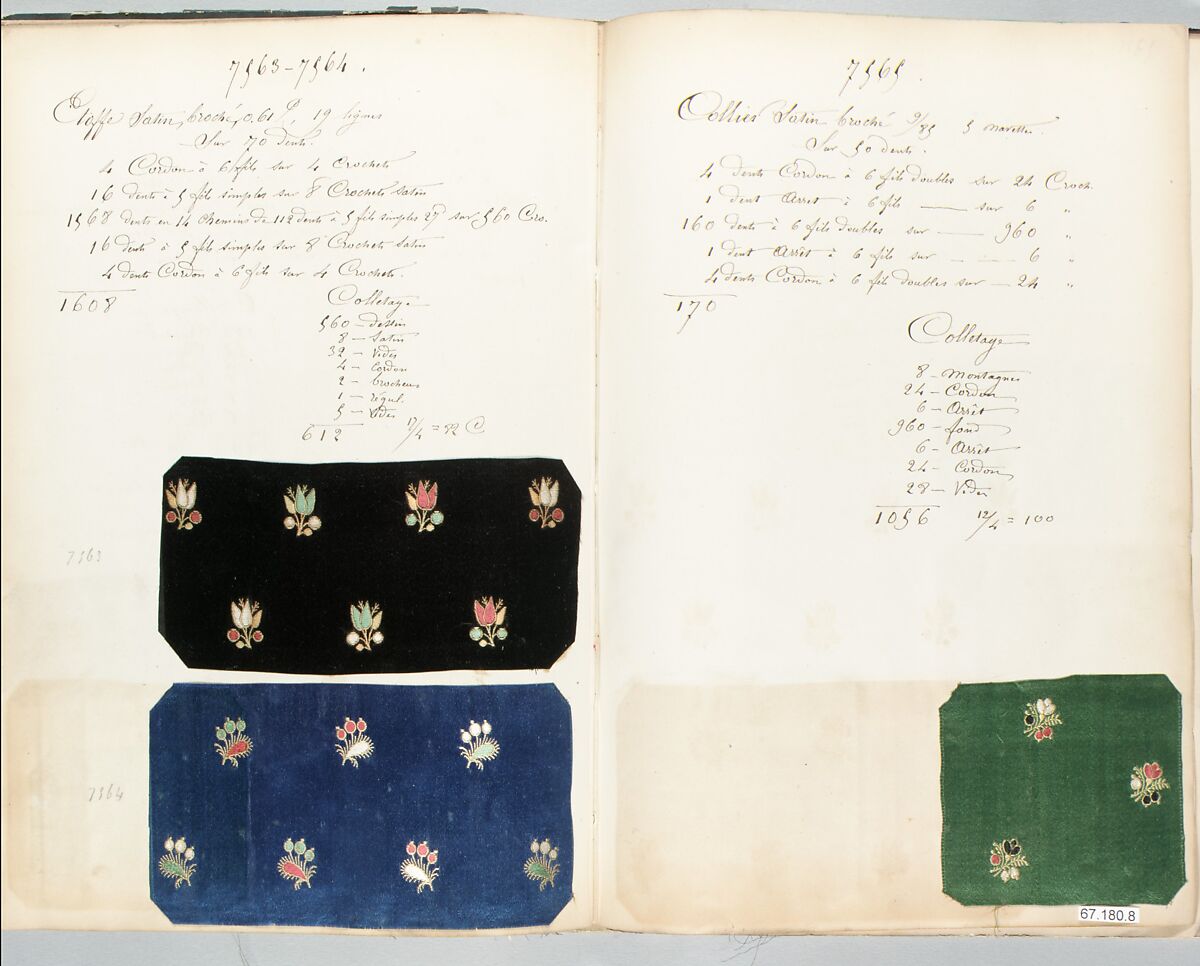 7563-7564.
Etoffe Satin, broché, 0.61 19 lignes
Sur 70 Dents.
4 Cordon à 6 fils sur 4 Crochets
16 dents à 5 fils simples sur 8 Crochets Satin
1568 dents en 14 Chemins de 112 dents à 5 fils simples sur 560 Cro.
16 dents à 5 fils simples sur 8 Crochets Satin
4 dents Cordon à 6 fils sur 4 Crochets.
1608
Colletage.
560 - dessin
8 - Satin
32 - Vides
4 - Cordon
2 - brocheurs
1 - régul.
5 - Vides
612 12/4 = 52 C
7563
7564
7565.
Collier Satin broché 9/85 5 navettes.
Sur 50 dents.
4 dents Cordon à 6 fils doubles sur 24 Croch.
1 dent Arret à 6 fils — sur 6 "
160 dents à 6 fils doubles sur — 960 "
1 dent Arrêt à 6 fils sur — 6 "
4 dents Cordon à 6 fils doubles sur — 24 "
170
Colletage
8 - Montagnes
24 - Cordon
6 - Arrêt
960 - fond
6 - Arrêt
24 - Cordon
28 - Vides
1056 12/4 = 100
67.180.8